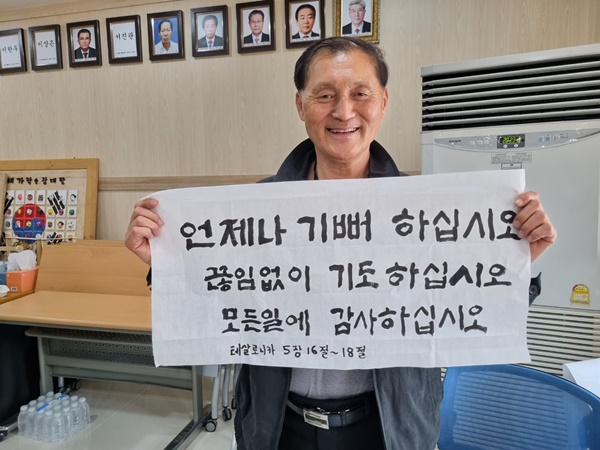 이진관
언제나 기뻐 하십시오
끊임없이 기도하십시오
모든일에 감사하십시오
테살로니카 5장 16절~18절